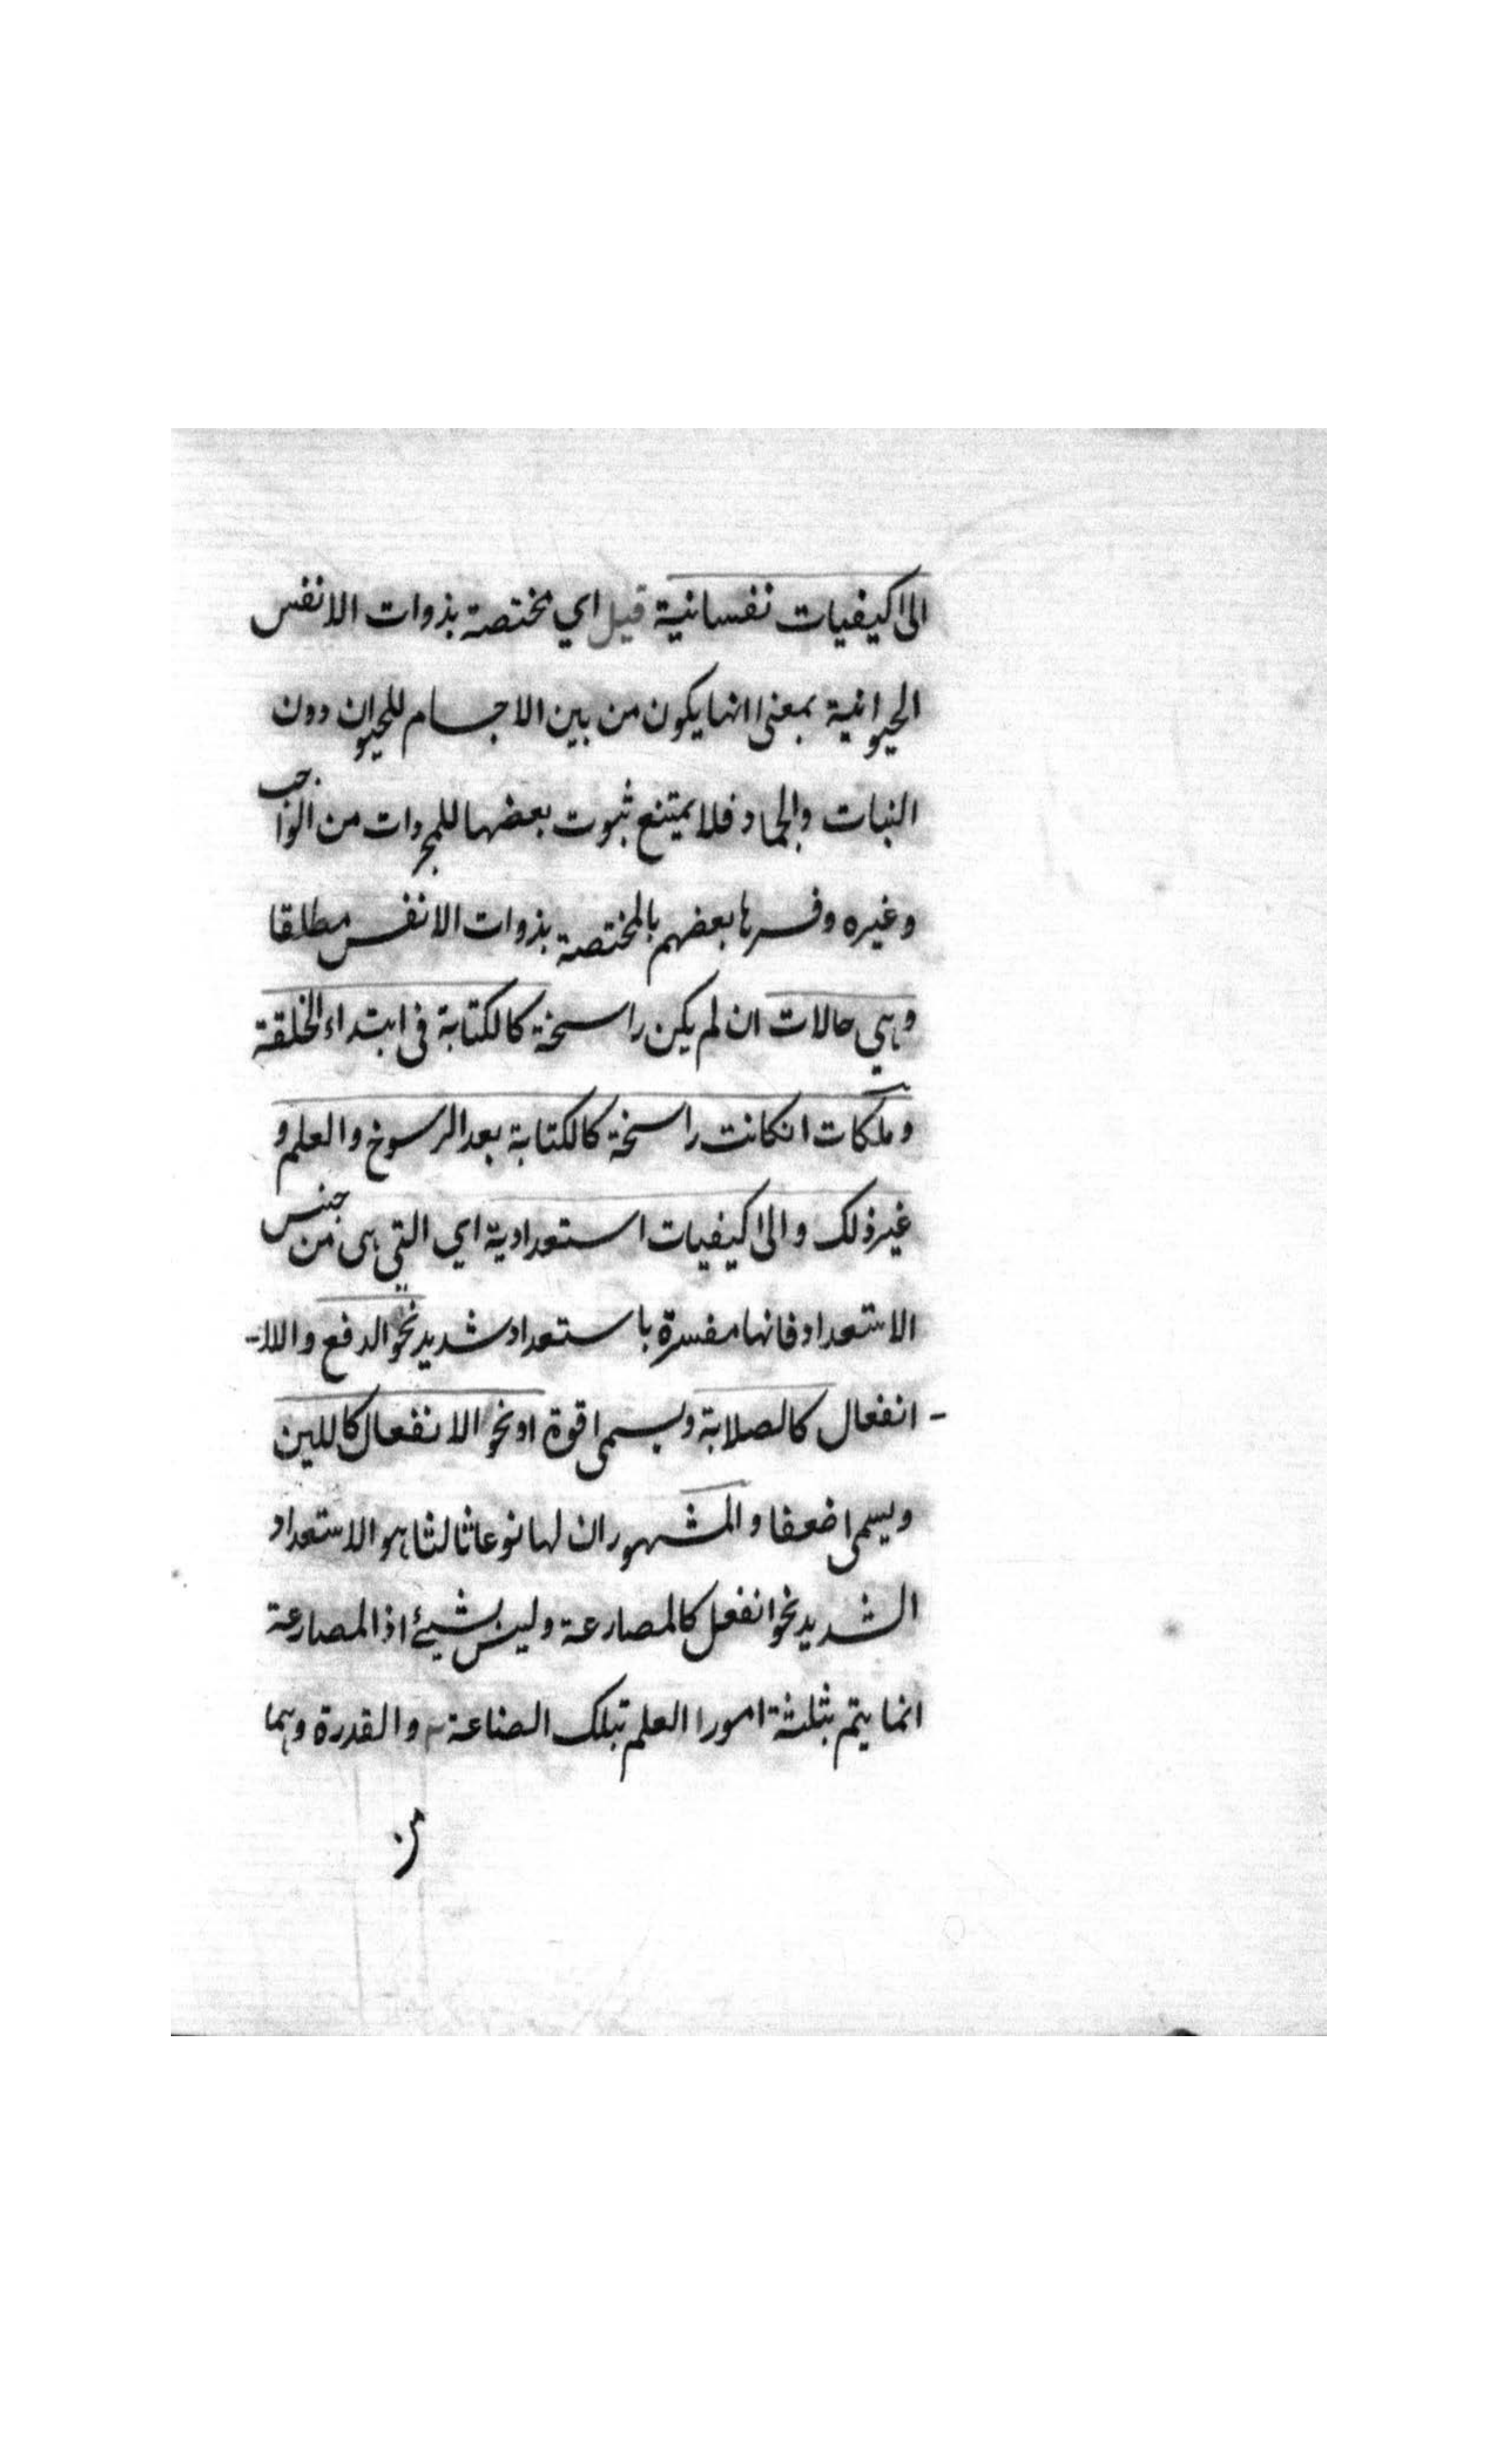 الى كيفيات نفسانية قيل اي مختصة بذوات الانفس
الحيوانية بمعنى انها يكون من بين الاجسام للحيوان دون
النبات والجماد فلا يمتنع ثبوت بعضها للمجردات من الواجب
وغيره وفسرها بعضهم بالمختصة بذوات الانفس مطلقا
وهي حالات ان لم يكن راسخة كالكتابة في ابتداء الخلقة
وملكات انكانت راسخة كالكتابة بعد الرسوخ والعلم و
غير ذلك والى كيفيات استعدادية اي التي هى من جنس
الاستعداد فانها مفسرة باستعداد شديد نحو الدفع واللا-
- انفعال كالصلابة ويسمى قوة او نحو الانفعال كاللين
ويسمى ضعفا والمشهور ان لها نوعا ثالثا هو الاستعداد
الشديد نحو انفعل كالمصارعة وليس بشيئ اذ المصارعة
انما يتم بثلثة امور العلم بتلك الصناعة والقدرة وهما
من